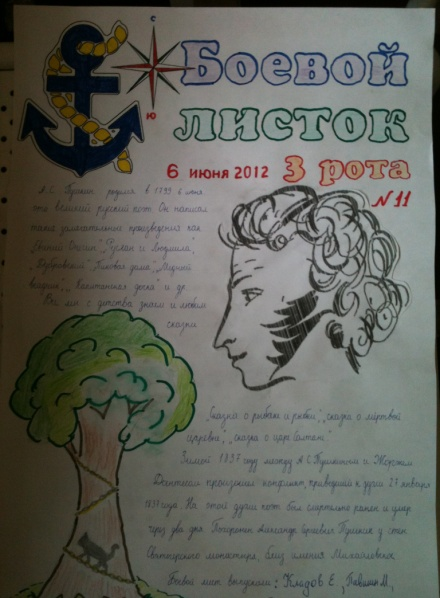 С
Боевой
листок
Ю
6 июня 2012 3 рота
N 11
А.С. Пушкин родился в 1799 6 июня
это великий русский поэт. Он написал
такие замечательные произведения как
"Евгений Онегин", "Руслан и Людмила",
"Дубровский", "Пиковая дама", "Медный
всадник", "Капитанская дочка" и др.
Все мы с детства знаем и любим
сказки
"Сказка о рыбаке и рыбки", "сказка о мёртвой
царевне", "сказка о царе Салтане"
Зимой 1837 году между А.С. Пушкиным и Жоржем
Дантесом произошел конфликт, приведший к дуэли 27 января
1837 года. На этой дуэли поэт был смертельно ранен и умер
через два дня. Похоронен Александр Сергеевич Пушкин у стен
Святогорского монастыря, близ имения Михайловское.
Боевой лист выпускали: Кладов Е.,